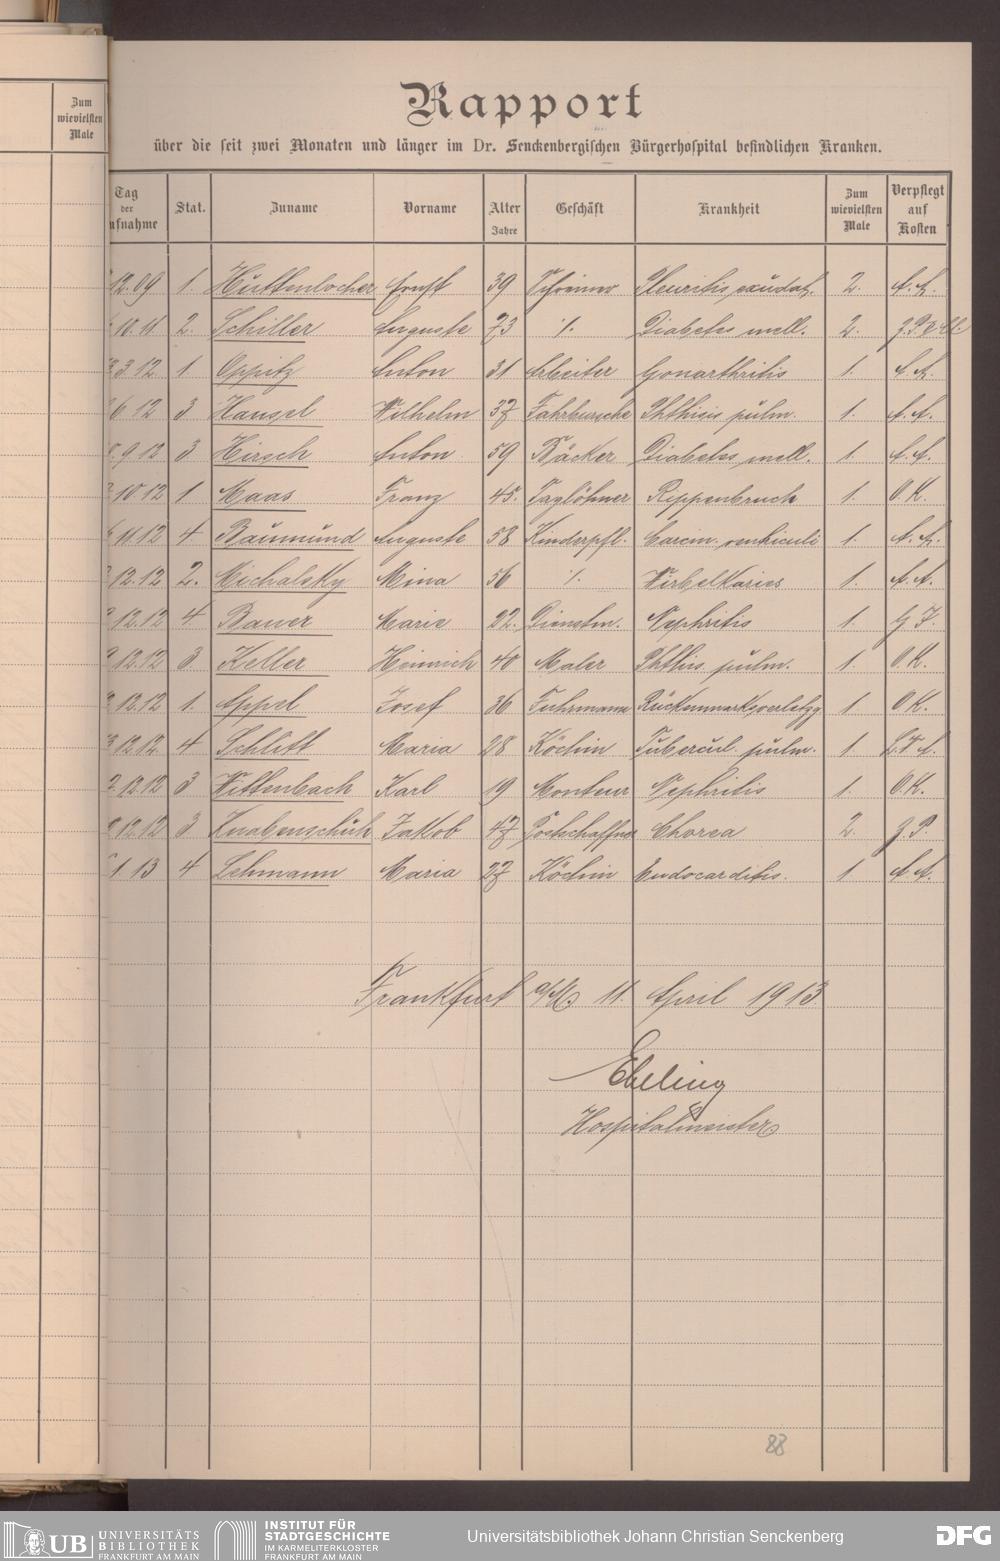 Zum
wievielsten
Male
Rapport
über die seit zwei Monaten und länger im Dr. Senckenbergischen Bürgerhospital befindlichen Kranken.
Tag der ufnahme Stat. Zuname Vorname Alter Jahre Geschäft Krankheit Zum wievielsten Male Verpflegt auf Kosten
12.09 1. Huttenlocher Ernst 39 Schreiner Pleuritis exsudat. 2. A. A.
10.11 2. Schiller Auguste 73 ./. Diabetes mell. 2.
3 12 1 Oppitz Anton 31 Arbeiter Gonarthritis 1. A. A.
6 12 3 Hansel Wilhelm 37 Fahrbursche Phthisis pulm. 1. A. A.
9 12 3 Hirsch Anton 59 Bäcker Diabetes mell. 1. A. A.
10 12 1 Maas Franz 45. Taglöhner Rippenbruch 1. O. K.
11.12 4 Baumund Auguste 58 Kinderpfl. Carcin. ventriculi 1. A. A.
12.12 2. Michalsky Mina 56 ./. Wirbelkaries 1. A. A.
12.12 4 Bauer Marie 22. Dienstm. Nephritis 1.
12.12 3. Keller Heinrich 40 Maler Phthis. pulm. 1. O. K.
12.12 1. Appel Josef 36 Fuhrmann Rückenmarksverletzg 1. O K.
12.12. 4 Schlitt Maria 28 Köchin Tubercul. pulm. 1.
12.12 3 Wittenbach Karl 19 Monteur Nephritis 1. O K.
12.12 3 Knabenschuh Jakob 47 Postschaffner Chorea 2. z. P.
1 13 4 Lehmann Maria 27 Köchin Endocarditis. 1 A A.
Frankfurt a/M. 11. April 1913.
Ebeling
Hospitalmeister
88
UB UNIVERSITÄTS BIBLIOTHEK FRANKFURT AM MAIN
INSTITUT FÜR STADTGESCHICHTE IM KARMELITERKLOSTER FRANKFURT AM MAIN
Universitätsbibliothek Johann Christian Senckenberg
DFG